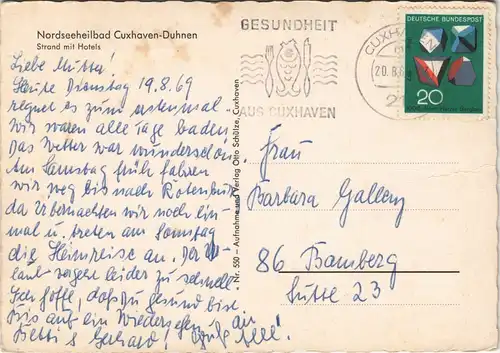 Nordseeheilbad Cuxhaven-Duhnen
Strand mit Hotels
Liebe Mutta!
Heute Dienstag 19.8.69
regnet es zum erstenmal
wir waren alle Tage baden
Das Wetter war wunderschön
Am Samstag früh fahren
wir weg bis nach Rotenburg
da Übernachten wir noch ein-
mal u. treten am Sonntag
die Heimreise an. Der U-
laub vergeht leider zu schnell
Ich hoffe, daß du gesund bist
Bis auf ein Wiedersehen
Betti & Gerhard!
Nr. 550 – Aufnahme und Verlag Otto Schülze, Cuxhaven
GESUNDHEIT
AUS CUXHAVEN
CUXHAVEN
20.8.6
DEUTSCHE BUNDESPOST
20
Frau
Barbara Gallery
86 Bamberg
Sutte 23